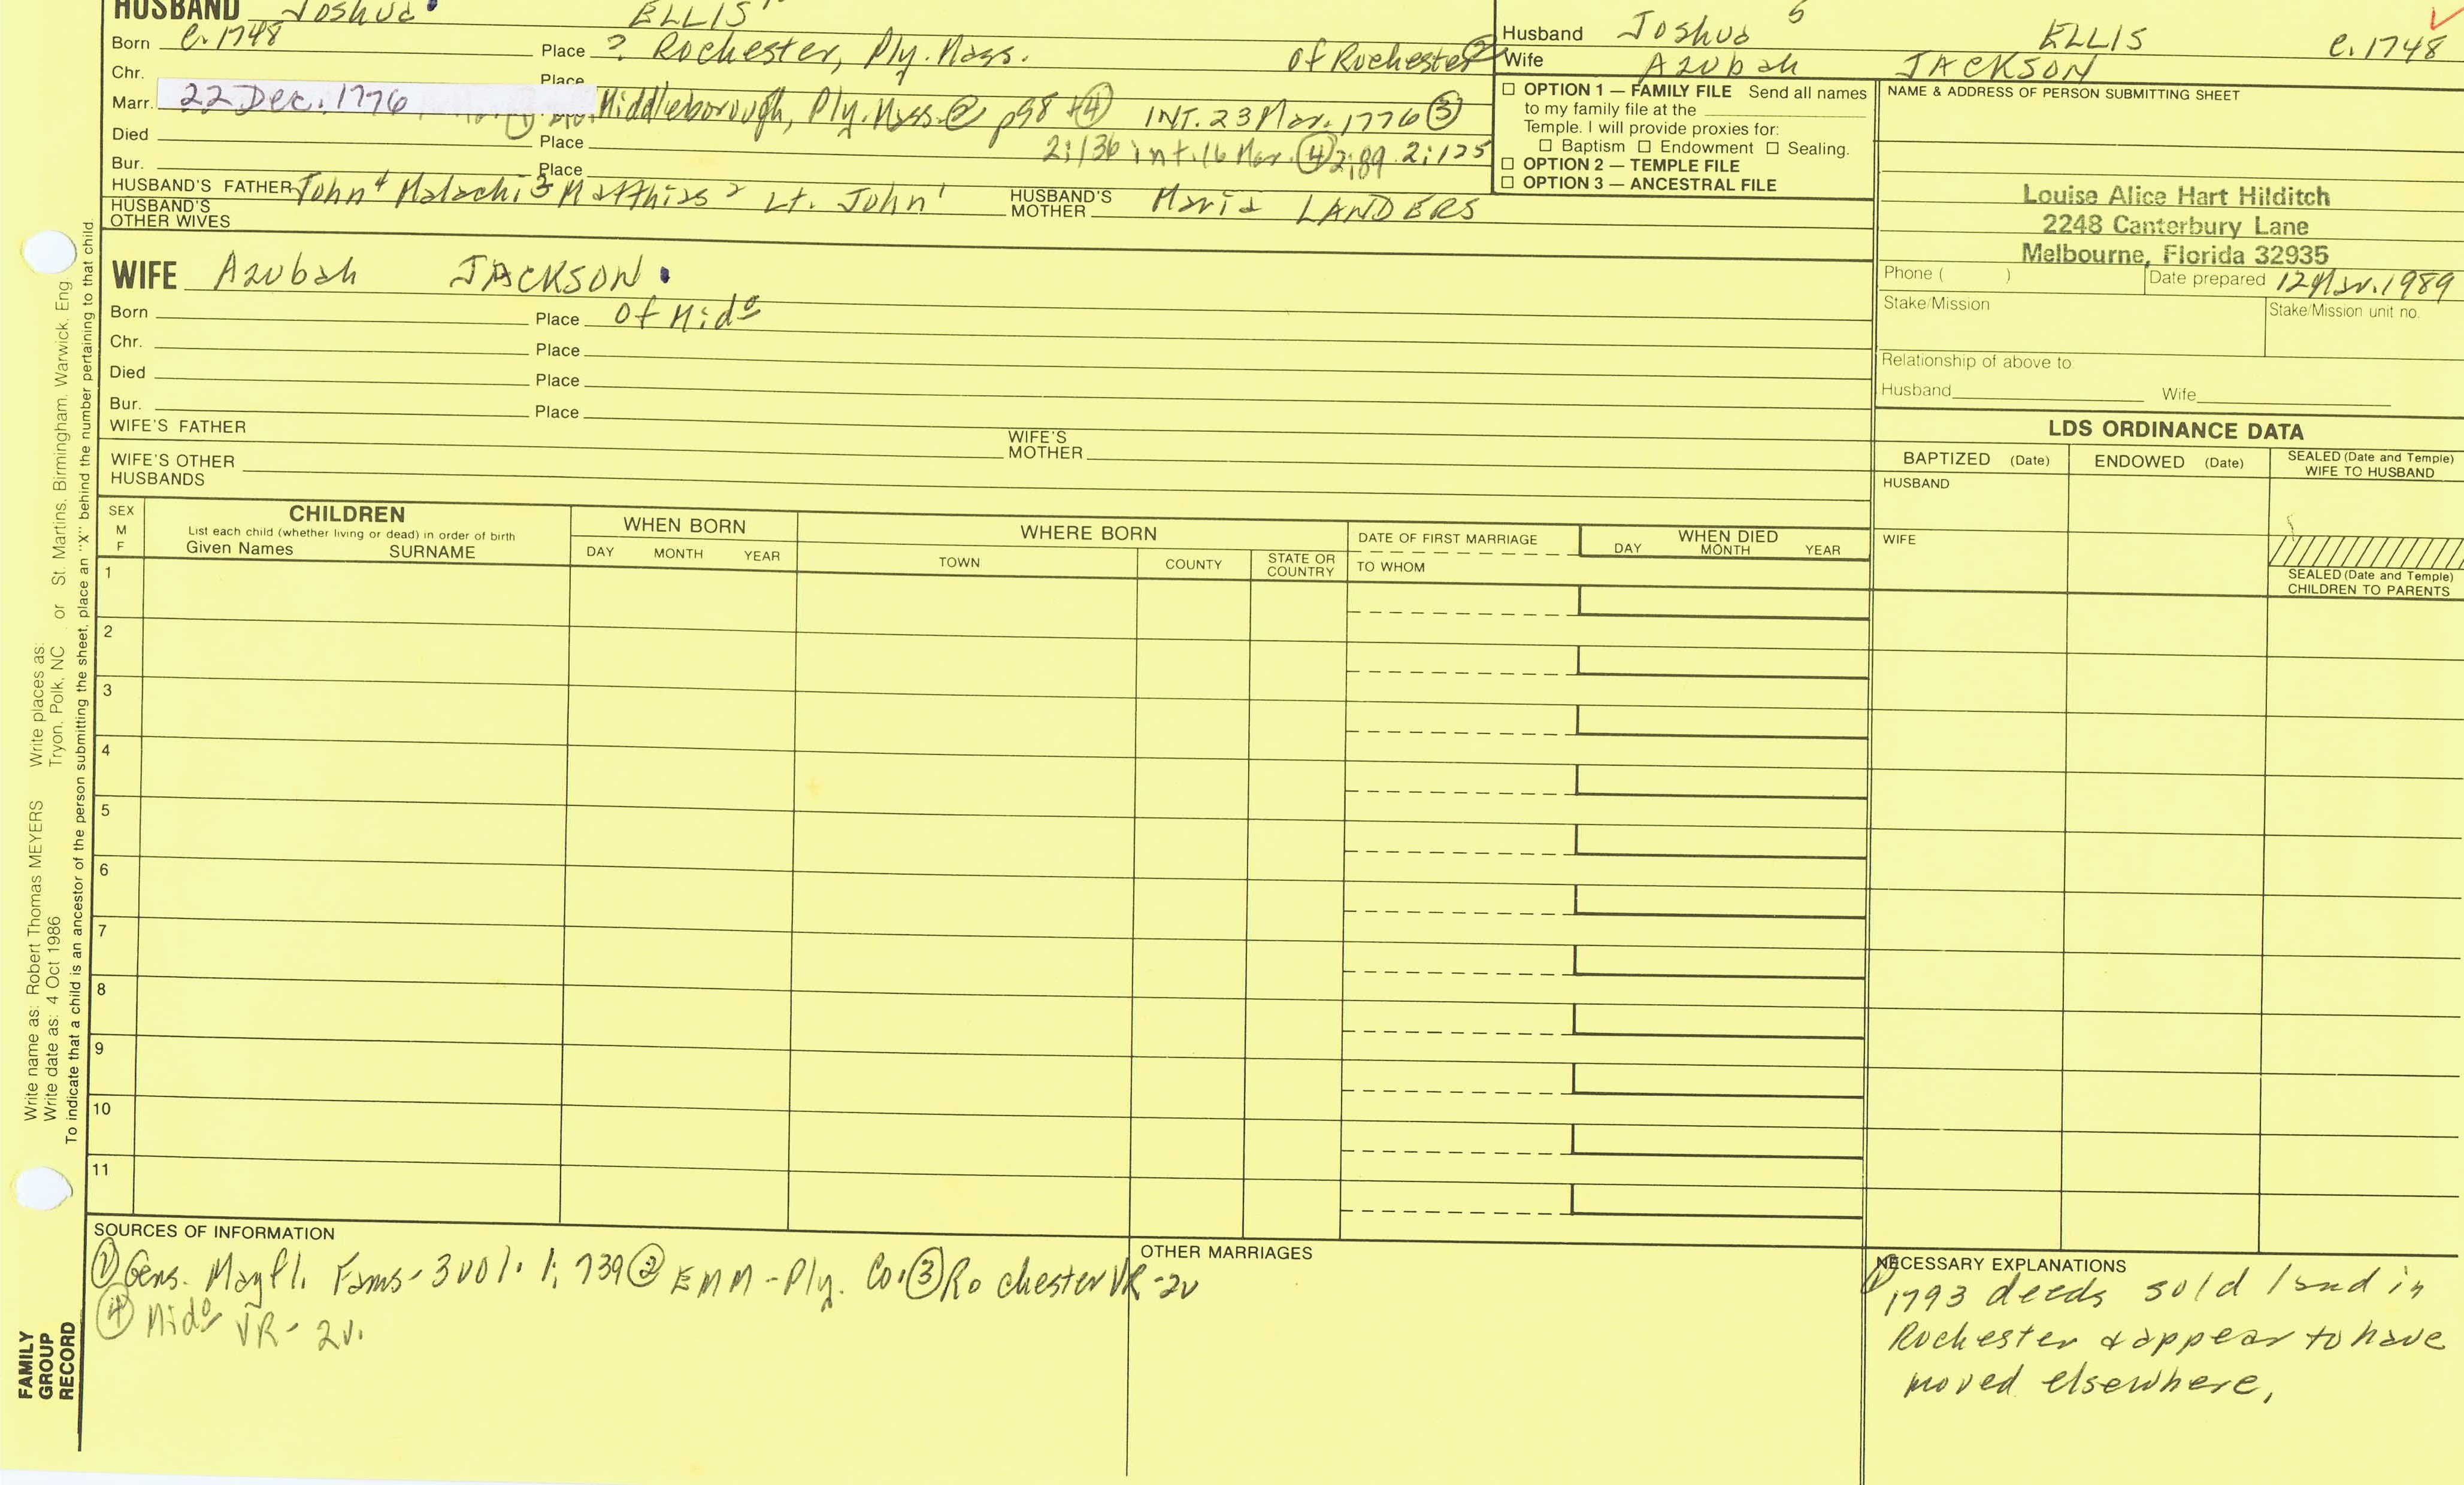 HUSBAND Joshua ELLIS
Born c. 1748 Place ? Rochester, Ply. Mass. of Rochester ②
Chr. Place
Marr. 22 Dec. 1776 Middleborough, Ply. Mass. ② p98 + ④ INT. 23 Mar. 1776 ③
Died Place 2:136 int. 16 Mar. ④ 2:89 2:125
Bur. Place
HUSBAND'S FATHER John⁴ Malachi³ Matthias² Lt. John¹ HUSBAND'S MOTHER Maria LANDERS
HUSBAND'S OTHER WIVES
WIFE Azubah JACKSON
Born Place Of Mid⁰
Chr. Place
Died Place
Bur. Place
WIFE'S FATHER WIFE'S MOTHER
WIFE'S OTHER HUSBANDS
Husband Joshua⁵ ELLIS c. 1748
Wife Azubah JACKSON
☐ OPTION 1 — FAMILY FILE Send all names
to my family file at the
Temple. I will provide proxies for:
☐ Baptism ☐ Endowment ☐ Sealing.
☐ OPTION 2 — TEMPLE FILE
☐ OPTION 3 — ANCESTRAL FILE
NAME & ADDRESS OF PERSON SUBMITTING SHEET
Louise Alice Hart Hilditch
2248 Canterbury Lane
Melbourne, Florida 32935
Phone ( ) Date prepared 12 Mar. 1989
Stake/Mission Stake/Mission unit no.
Relationship of above to:
Husband Wife
LDS ORDINANCE DATA
BAPTIZED (Date) ENDOWED (Date) SEALED (Date and Temple) WIFE TO HUSBAND
HUSBAND
WIFE
SEALED (Date and Temple)
CHILDREN TO PARENTS
SEX M F
CHILDREN
List each child (whether living or dead) in order of birth
Given Names SURNAME
WHEN BORN
DAY MONTH YEAR
WHERE BORN
TOWN COUNTY STATE OR COUNTRY
DATE OF FIRST MARRIAGE
TO WHOM
WHEN DIED
DAY MONTH YEAR
1
2
3
4
5
6
7
8
9
10
11
SOURCES OF INFORMATION
① Gens. Mayfl. Fams - 300 1. 1; 739 ② EMM - Ply. Co. ③ Rochester VR - 2v
④ Mid⁰ VR - 2v.
OTHER MARRIAGES
NECESSARY EXPLANATIONS
① 1793 deeds sold land in
Rochester & appear to have
moved elsewhere.
Write name as: Robert Thomas MEYERS Write places as:
Write date as: 4 Oct 1986 Tryon, Polk, NC or St. Martins, Birmingham, Warwick, Eng.
To indicate that a child is an ancestor of the person submitting the sheet, place an "X" behind the number pertaining to that child.
FAMILY
GROUP
RECORD